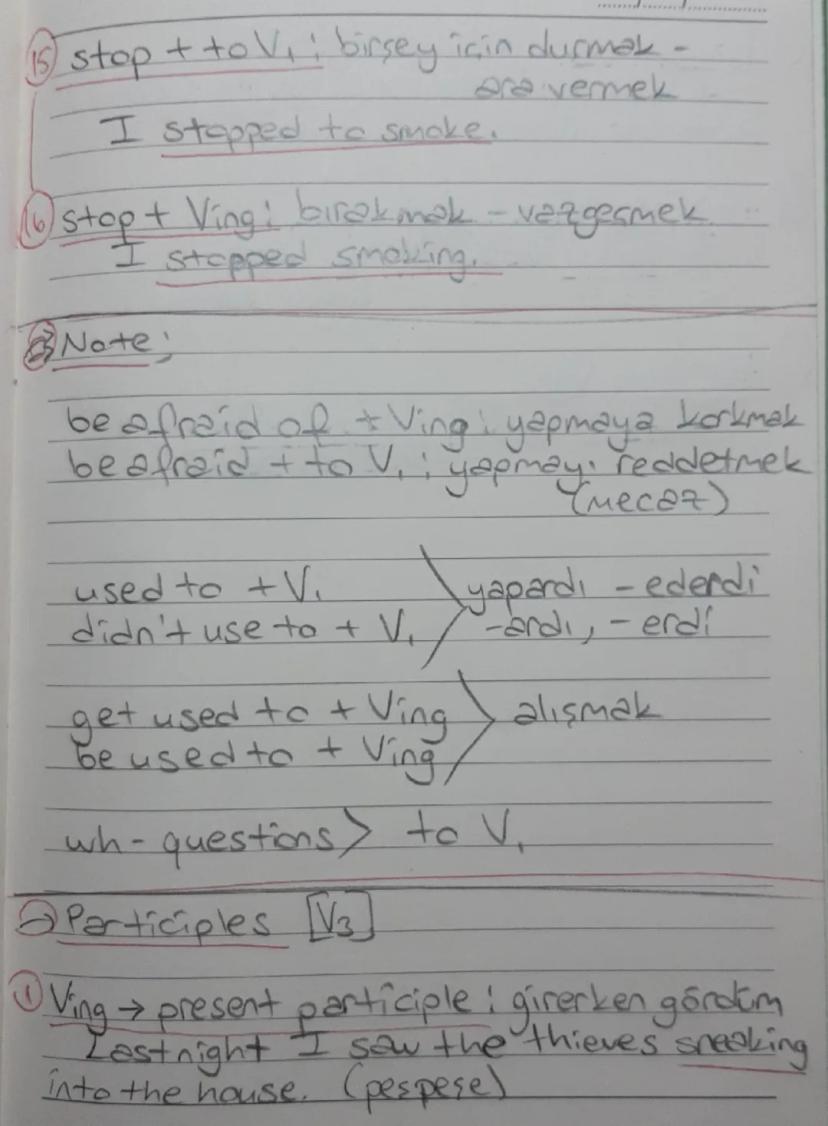 15 stop + to V1 : birşey için durmak -
ara vermek
I stopped to smoke.
16 stop + Ving : bırakmak - vazgeçmek
I stopped smoking.
Note ;
be afraid of + Ving : yapmaya korkmak
be afraid + to V1 : yapmayı reddetmek
(mecaz)
used to + V1 > yapardı - ederdi
didn't use to + V1 -ardı, - erdi
get used to + Ving > alışmak
be used to + Ving
wh- questions > to V1
→ Participles [V3]
1 Ving → present participle : girerken gördüm
Last night I saw the thieves sneaking
into the house. (peşpeşe)